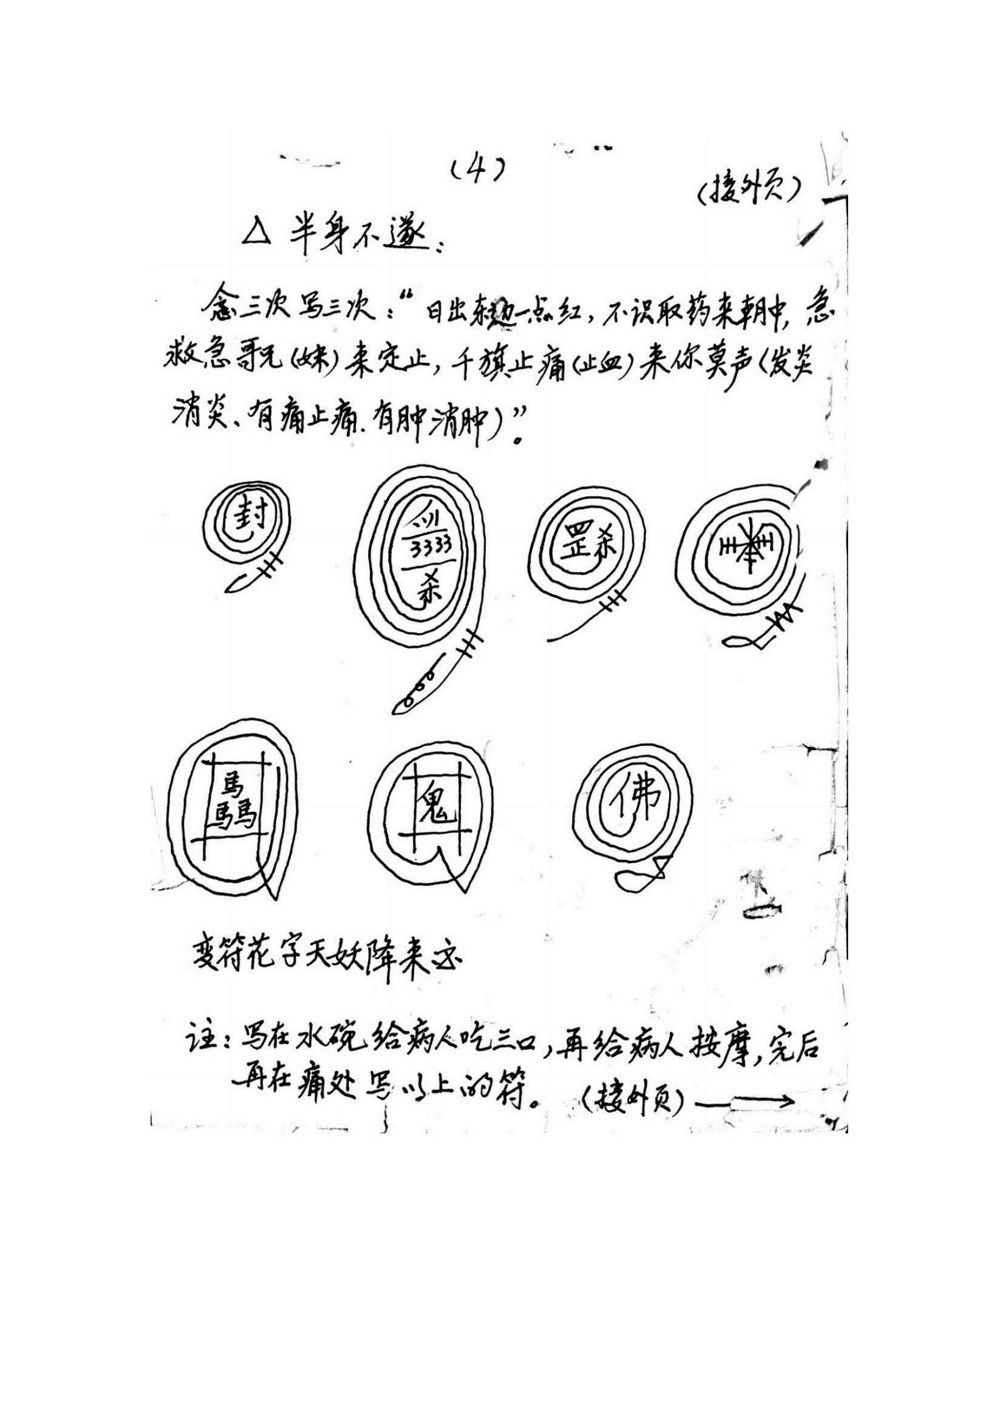 (4)
(接外页)
△ 半身不遂：
念三次写三次：“日出东边一点红，不识取药来朝中，急
救急哥兄(妹)来定止，千旗止痛(止血)来你莫声(发炎
消炎、有痛止痛.有肿消肿)”。
封
3333
杀
罡杀
馬
馬馬
鬼
佛
变符花字天妖降来
注：写在水碗给病人吃三口，再给病人按摩，完后
再在痛处写以上的符。(接外页)